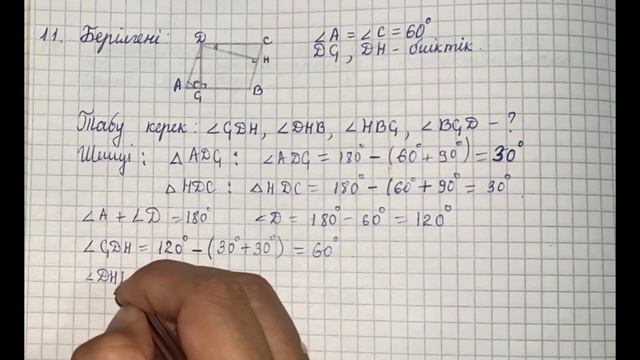 11. Берілгені:
D
C
H
A
G
B
∠A = ∠C = 60°
DG, DH - биіктік.
Табу керек: ∠GDH, ∠DHB, ∠HBG, ∠BGD - ?
Шешуі: △ADG: ∠ADG = 180° - (60° + 90°) = 30°
△HDC: △HDC = 180° - (60° + 90° = 30°
∠A + ∠D = 180° ∠D = 180° - 60° = 120°
∠GDH = 120° - (30° + 30°) = 60°
∠DH